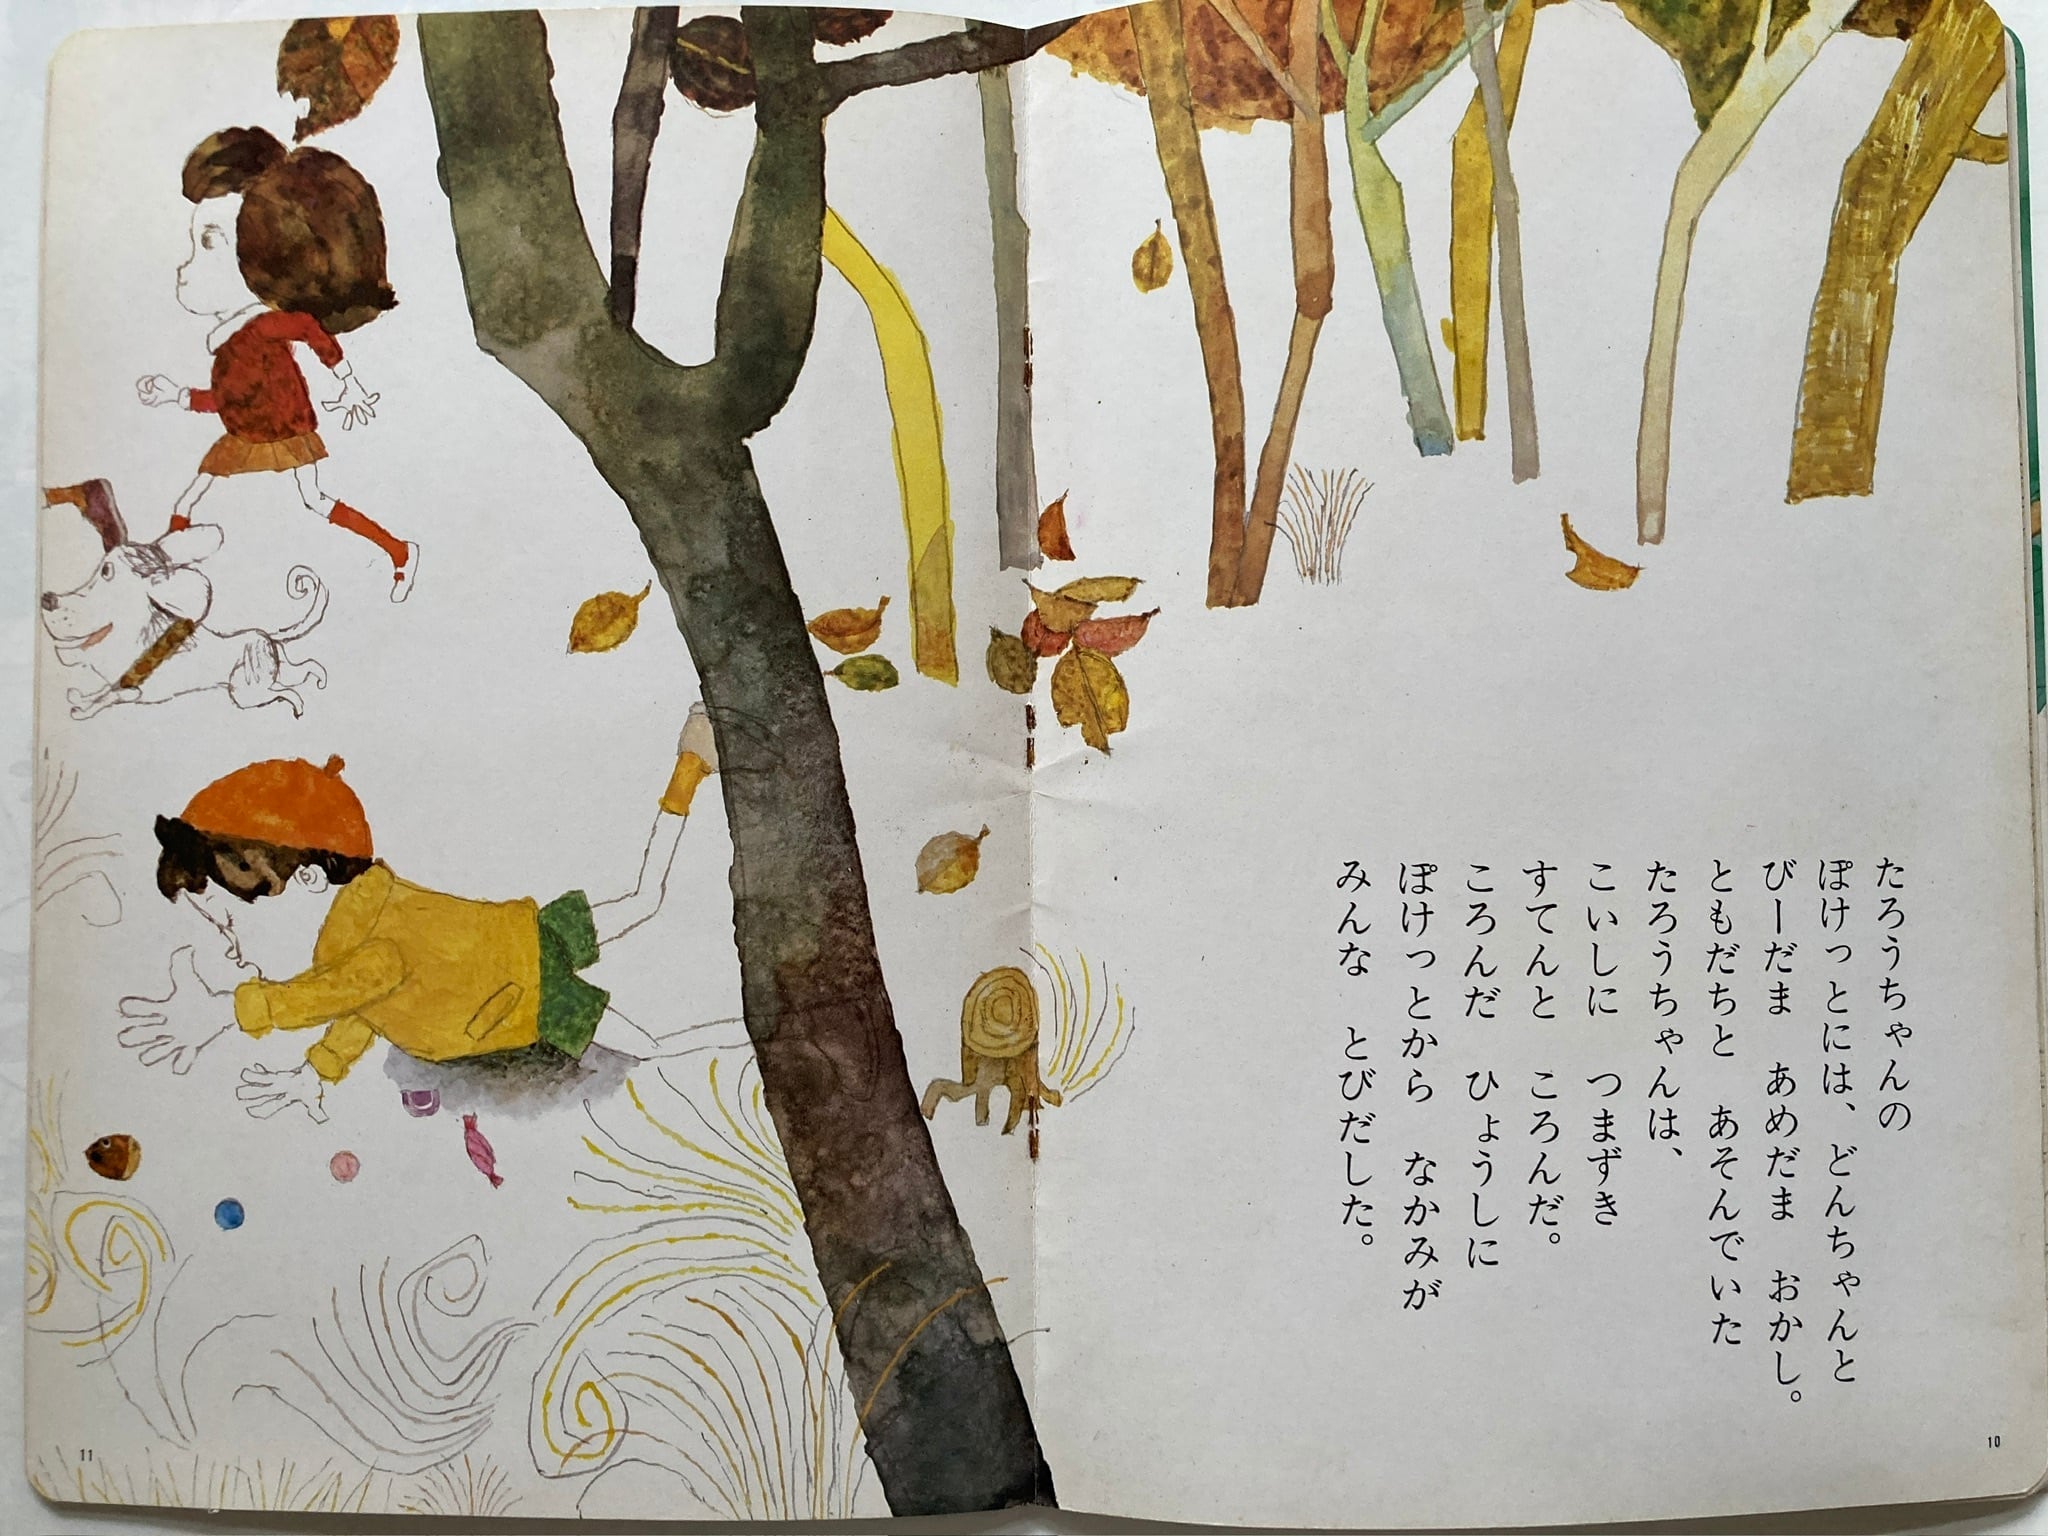 たろうちゃんの
ぽけっとには、どんちゃんと
びーだま　あめだま　おかし。
ともだちと　あそんでいた
たろうちゃんは、
こいしに　つまずき
すてんと　ころんだ。
ころんだ　ひょうしに
ぽけっとから　なかみが
みんな　とびだした。
10
11